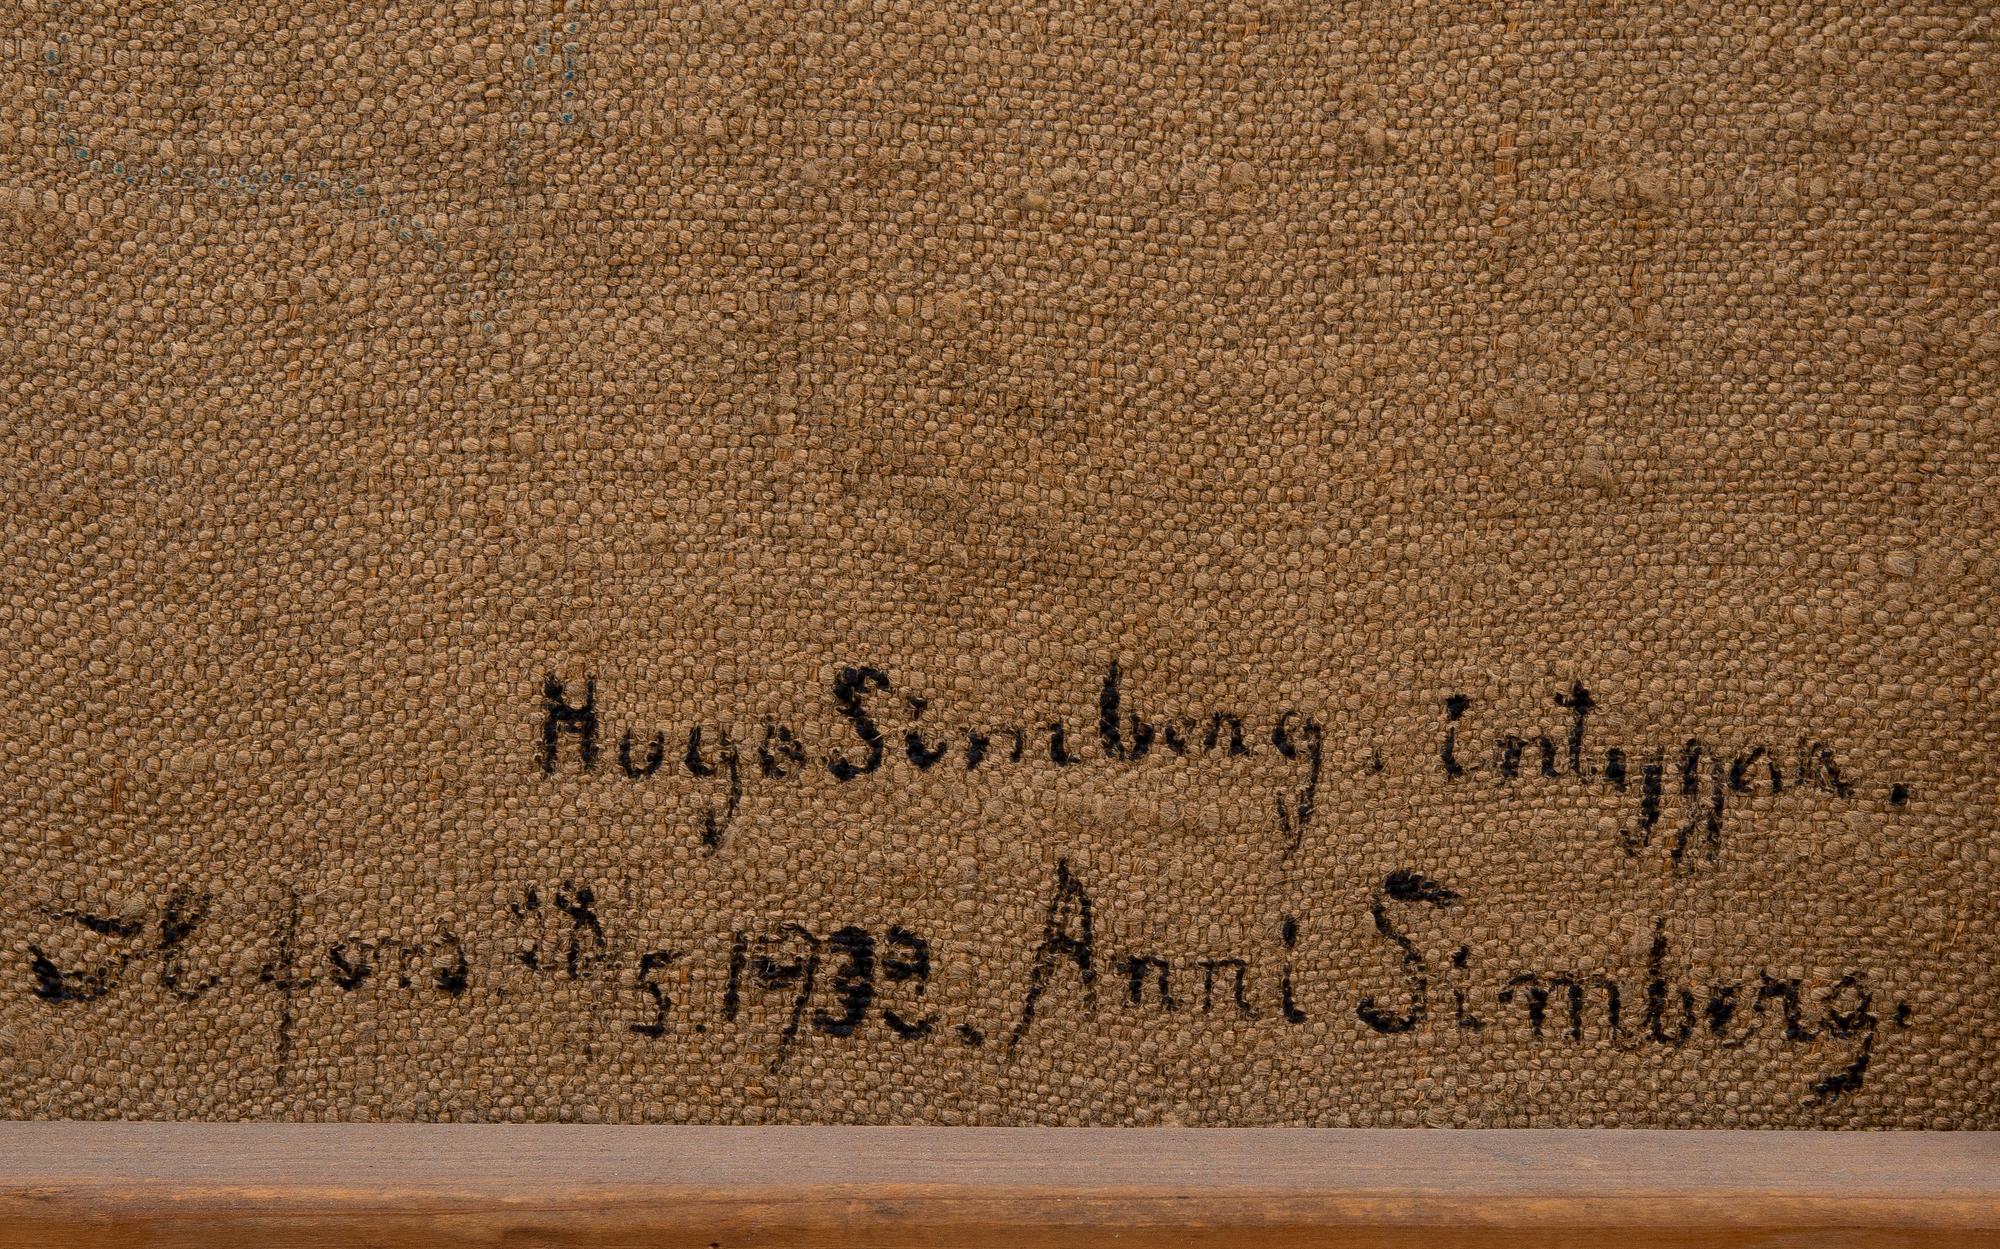 Hugo Simberg. intygar.
H:fors 18/5.1932. Anni Simberg.